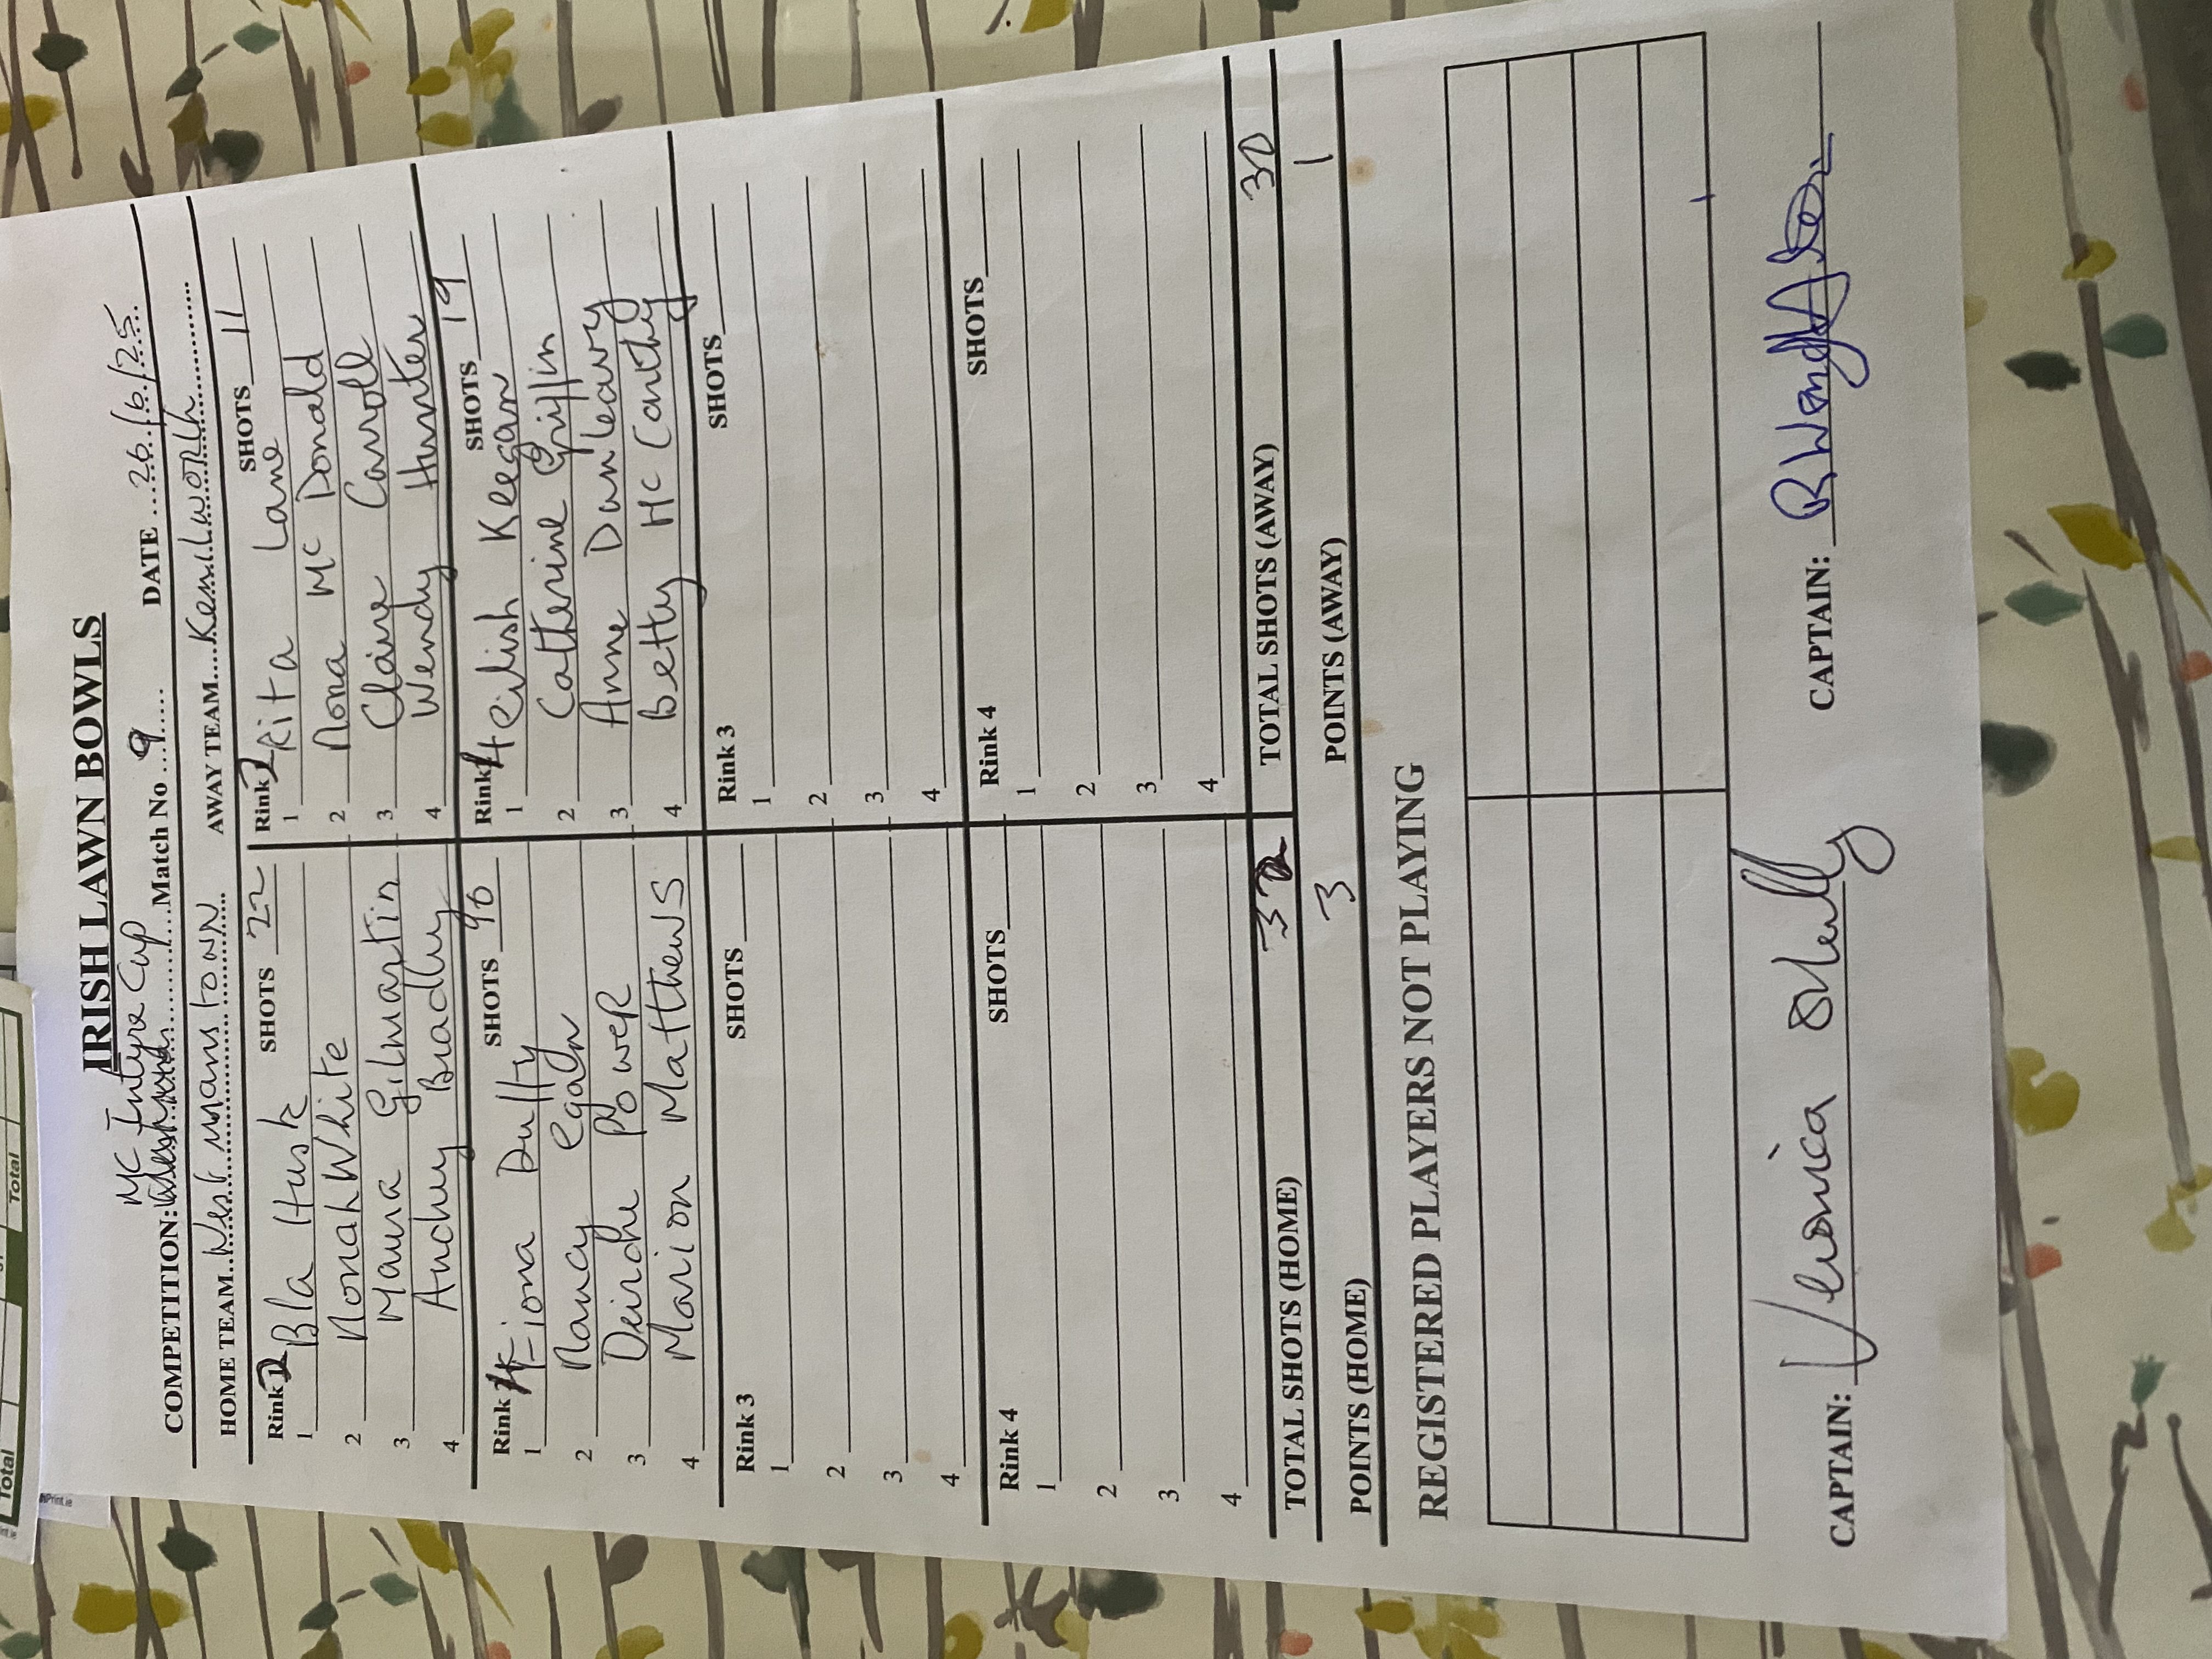 IRISH LAWN BOWLS
Mc Intyre Cup
COMPETITION: Match No 9 DATE 26/6/25
HOME TEAM Westmanstown AWAY TEAM Kenilworth
Rink 2 SHOTS 22 Rink 2 SHOTS 11
1 Bla Husk 1 Rita Lane
2 Nonah White 2 Nona Mc Donald
3 Maura Gilmartin 3 Claire Carroll
4 Audrey Bradley 4 Wendy Hunter
Rink 4 SHOTS 10 Rink 4 SHOTS 19
1 Fiona Duffy 1 Eilish Keegan
2 Nancy Egan 2 Catherine Griffin
3 Deirdre Power 3 Anne Dunleavy
4 Marion Matthews 4 Betty Mc Carthy
Rink 3 SHOTS Rink 3 SHOTS
1 1
2 2
3 3
4 4
Rink 4 SHOTS Rink 4 SHOTS
1 1
2 2
3 3
4 4
TOTAL SHOTS (HOME) 32 TOTAL SHOTS (AWAY) 30
POINTS (HOME) 3 POINTS (AWAY) 1
REGISTERED PLAYERS NOT PLAYING
CAPTAIN: Veronica CAPTAIN:
Total Total